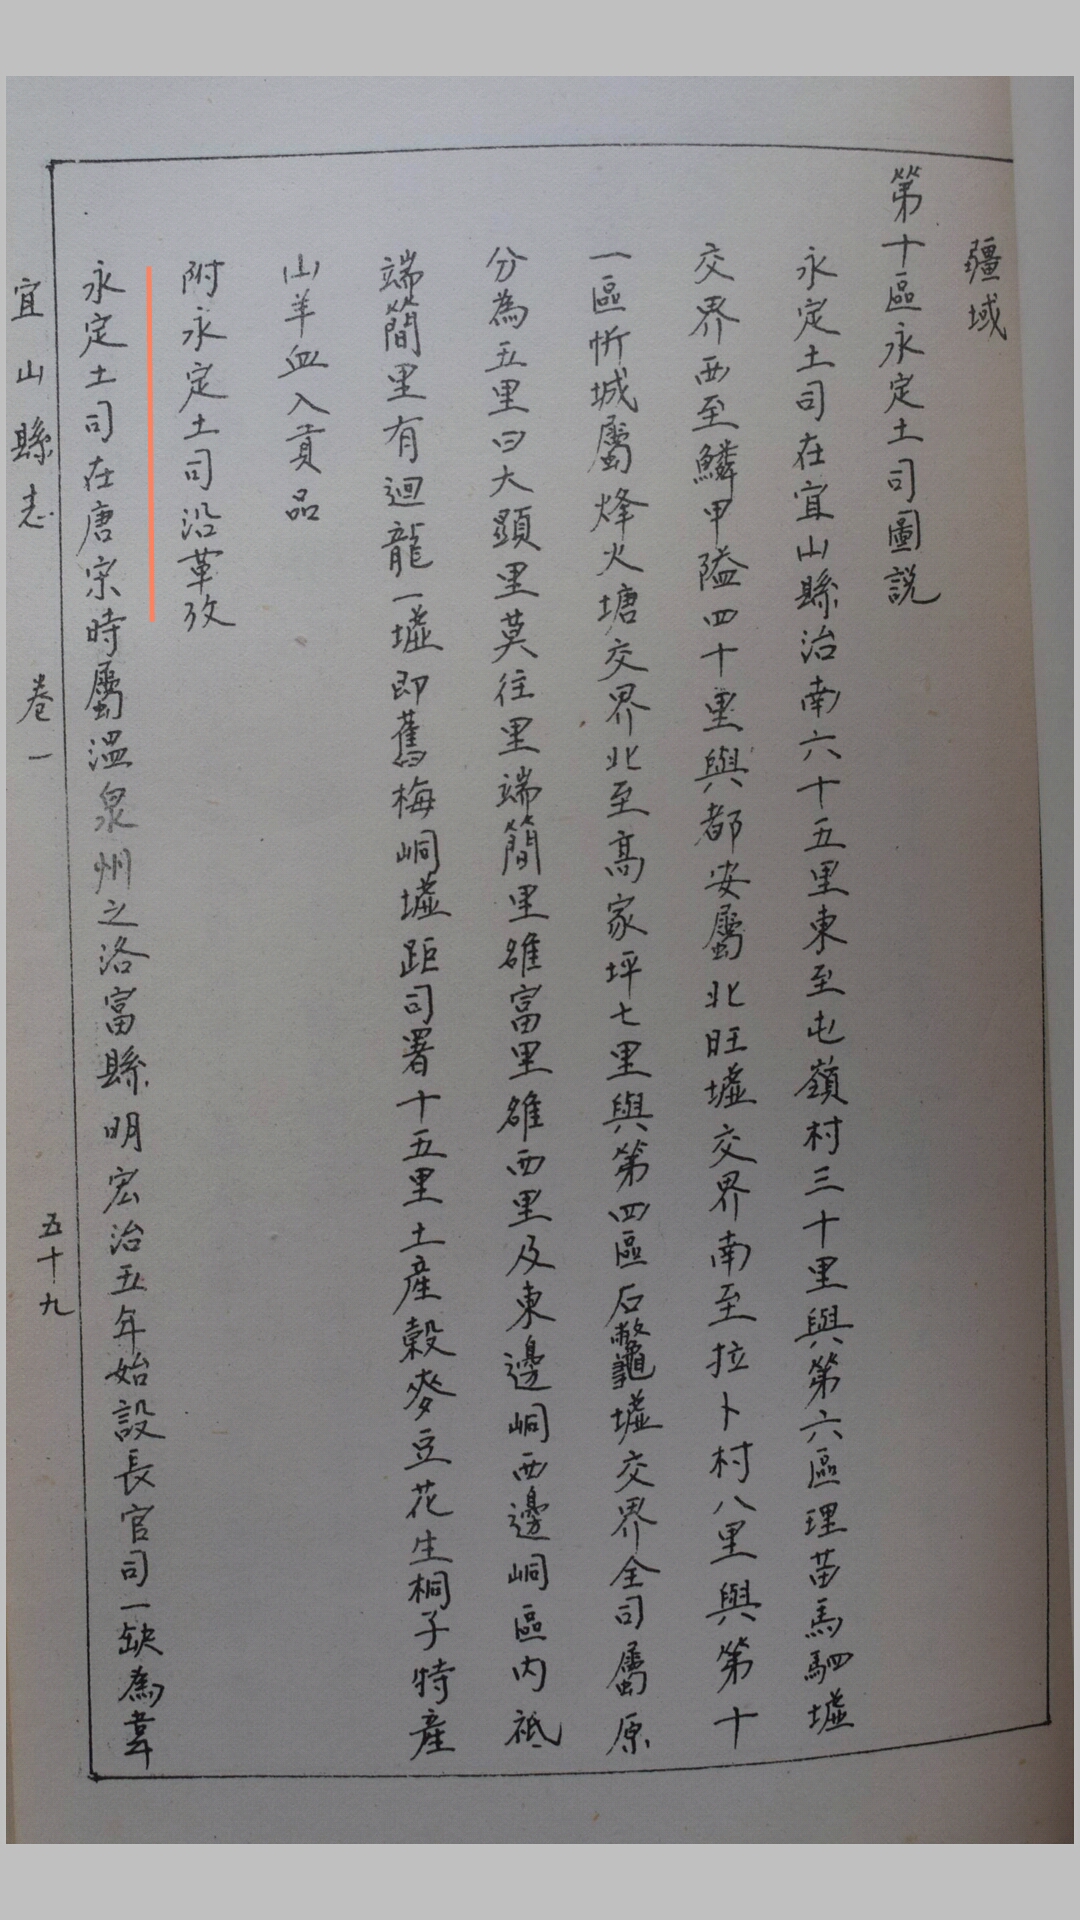 疆域
第十區永定土司圖説
永定土司在宜山縣治南六十五里東至屯嶺村三十里與第六區理苗馬駟墟
交界西至鱗甲隘四十里與都安屬北旺墟交界南至拉卜村八里與第十
一區忻城屬烽火塘交界北至高家坪七里與第四區石鼈墟交界全司屬原
分為五里曰大顕里莫往里端簡里雒富里雒西里及東邊峒西邊峒區内祗
端簡里有迴龍一墟即舊梅峒墟距司署十五里土産榖麥豆花生桐子特産
山羊血入貢品
附永定土司沿革攷
永定土司在唐宗時屬溫泉州之洛富縣明宏治五年始設長官司一缺為韋
宜山縣志 卷一 五十九